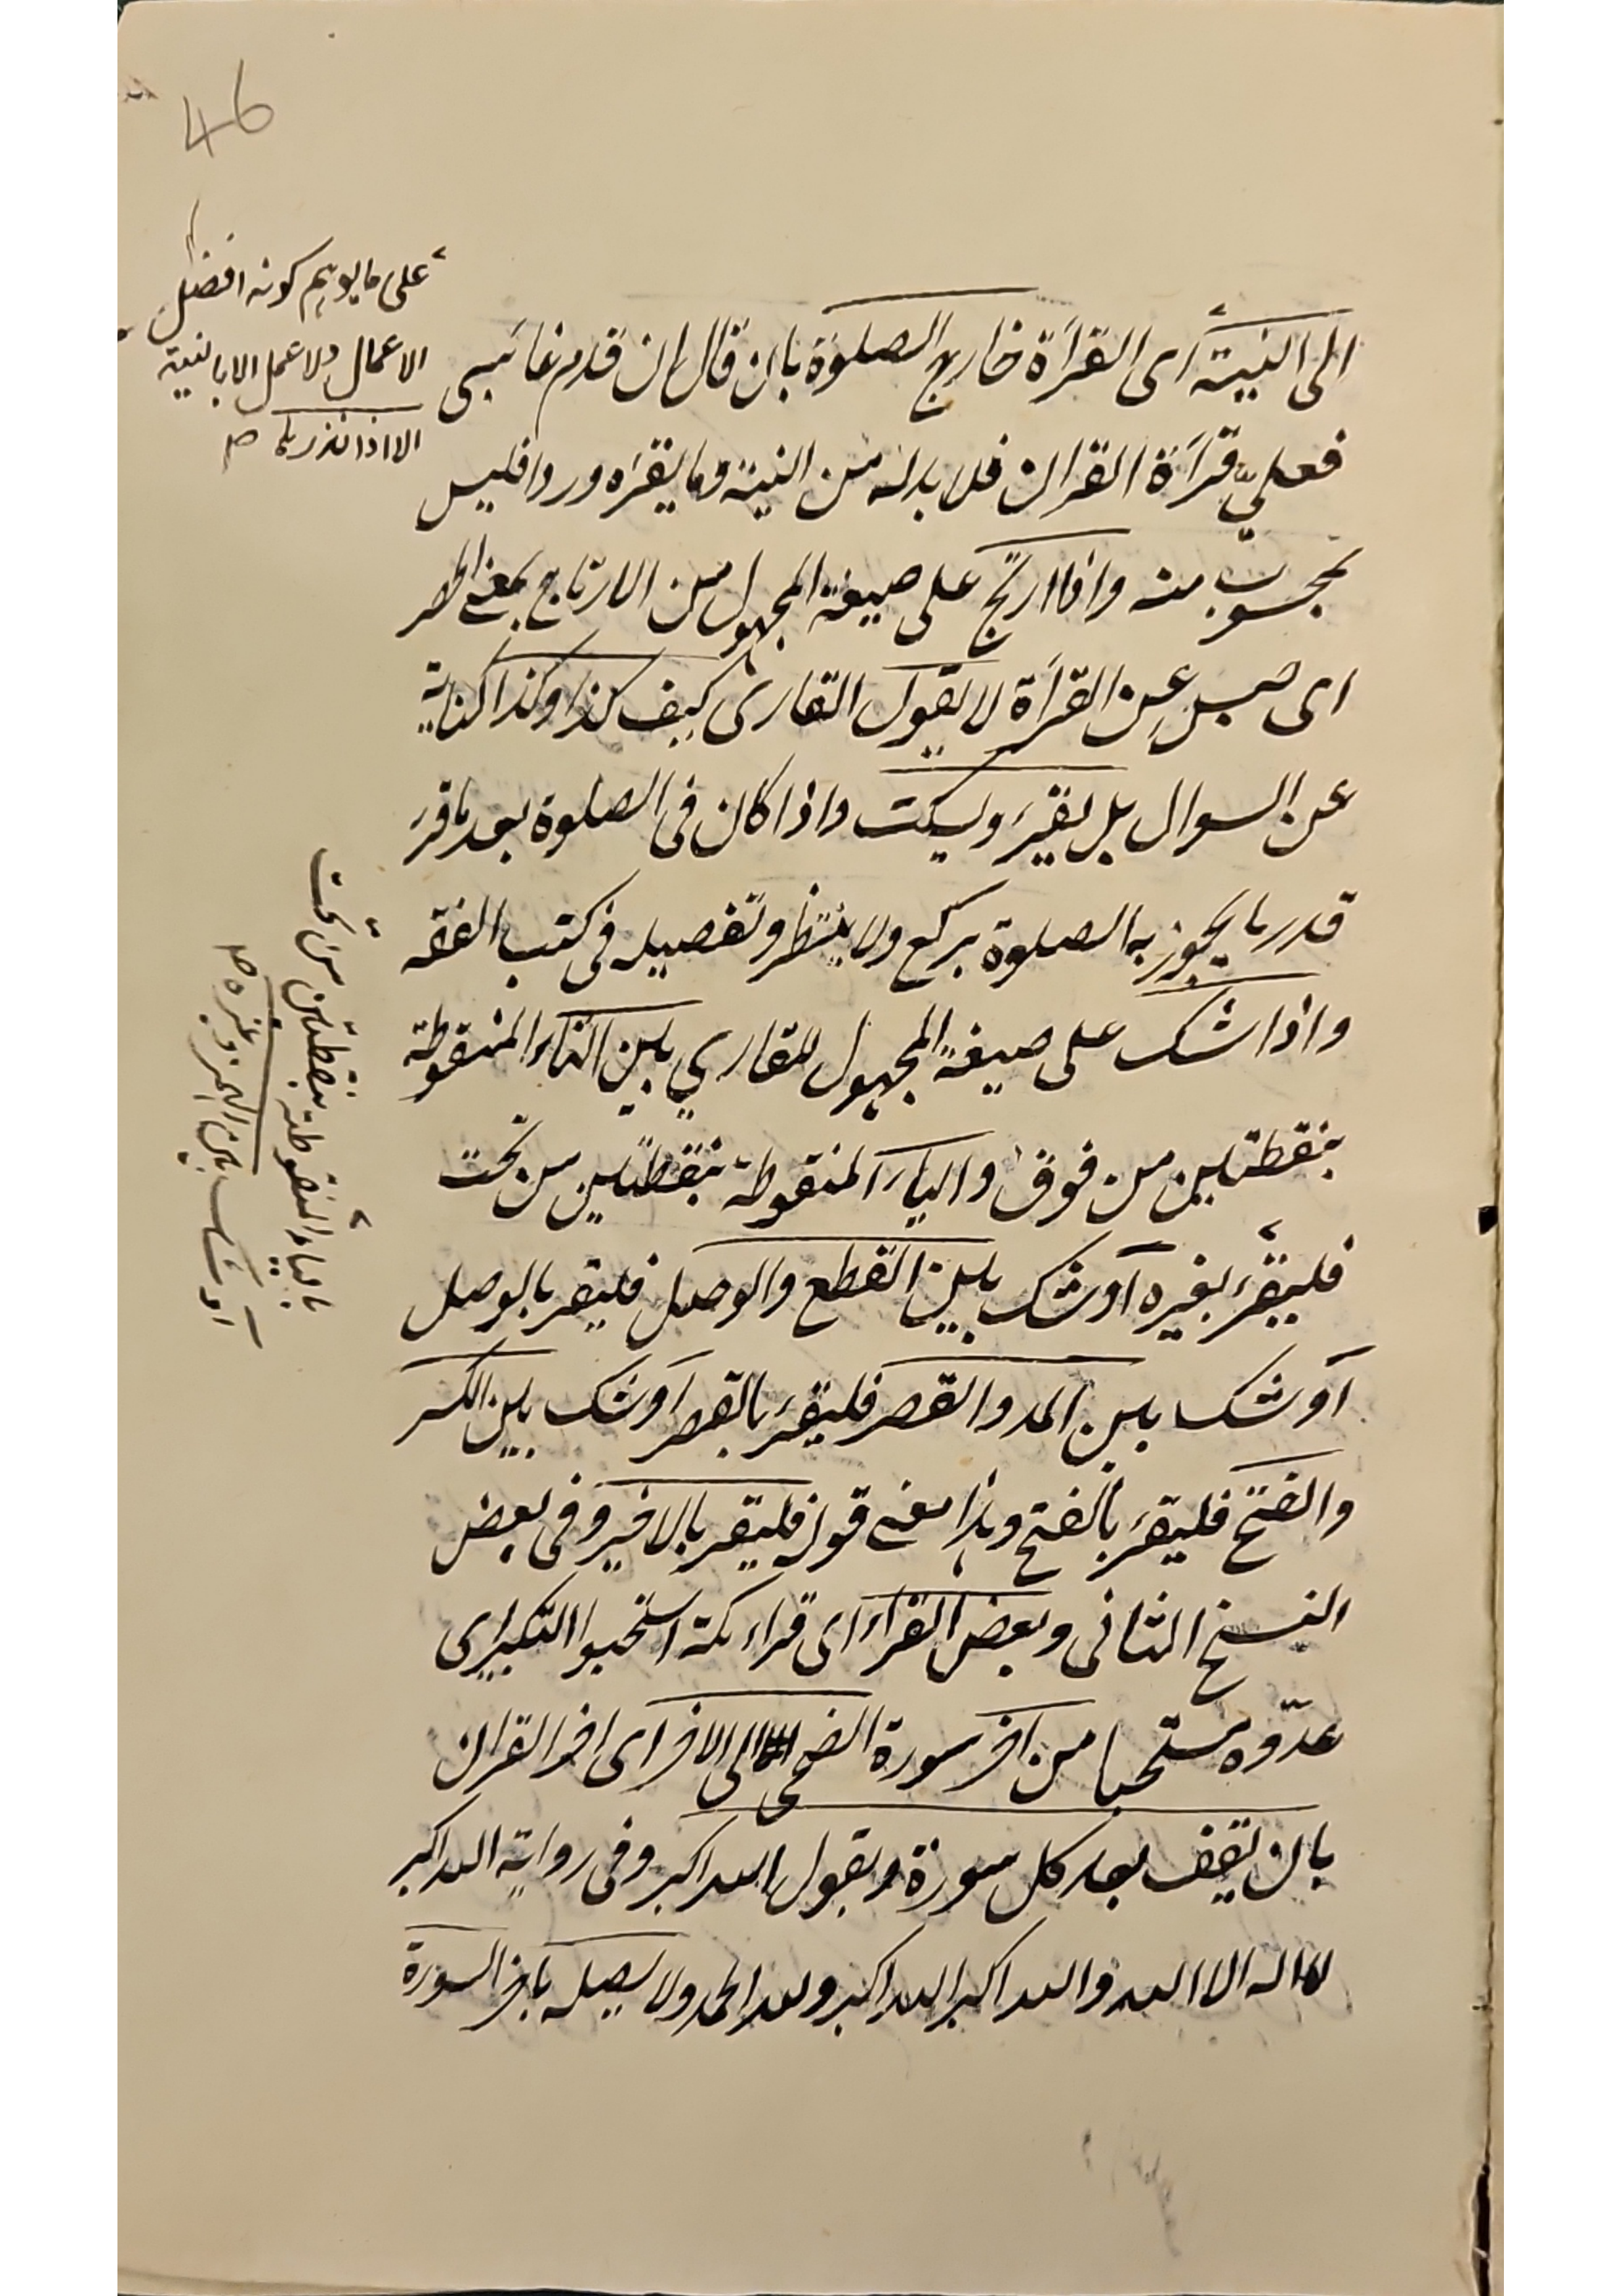 46
على ما يوهم كونه افضل
الاعمال ولا عمل الا بالنية
الا اذا نذر بها صح
الى النية اى القراءة خارج الصلوة بان قال ان قدم غائبى
فعليّ قراءة القران فلا بد له من النية وما يقرء وردا فليس
بمحسوب منه واذا ارتج على صيغة المجهول من الارتاج بمعنى
اى حبس عن القراءة لا يقول القارى كيف كذا وكذا كناية
عن السوال بل يقرء ويسكت واذا كان فى الصلوة بعد ما قرء
قدر ما يجوز به الصلوة يركع ولا ينتظر وتفصيله فى كتب الفقه
واذا شك على صيغة المجهول للقاري بين التاء المنقوطة
بنقطتين من فوق والياء المنقوطة بنقطتين من تحت
فليقرء بغيره او شك بين القطع والوصل فليقر بالوصل
او شك بين المد والقصر فليقرء بالقصر او شك بين الكسر
والفتح فليقرء بالفتح وهذا معنى قوله فليقر بالاخير وفى بعض
النسخ الثانى وبعض القراء اى قراء مكة استحبوا التكبير اى
عدّوه مستحبا من اخر سورة الضحى الى الاخر اى اخر القران
بان يقف بعد كل سورة ويقول الله اكبر وفى رواية الله اكبر
لا اله الا الله والله اكبر الله اكبر ولله الحمد ولا يصله باخر السورة
بالياء المنقوطة بنقطتين من تحت
او شك بين الهمز وغيره صح